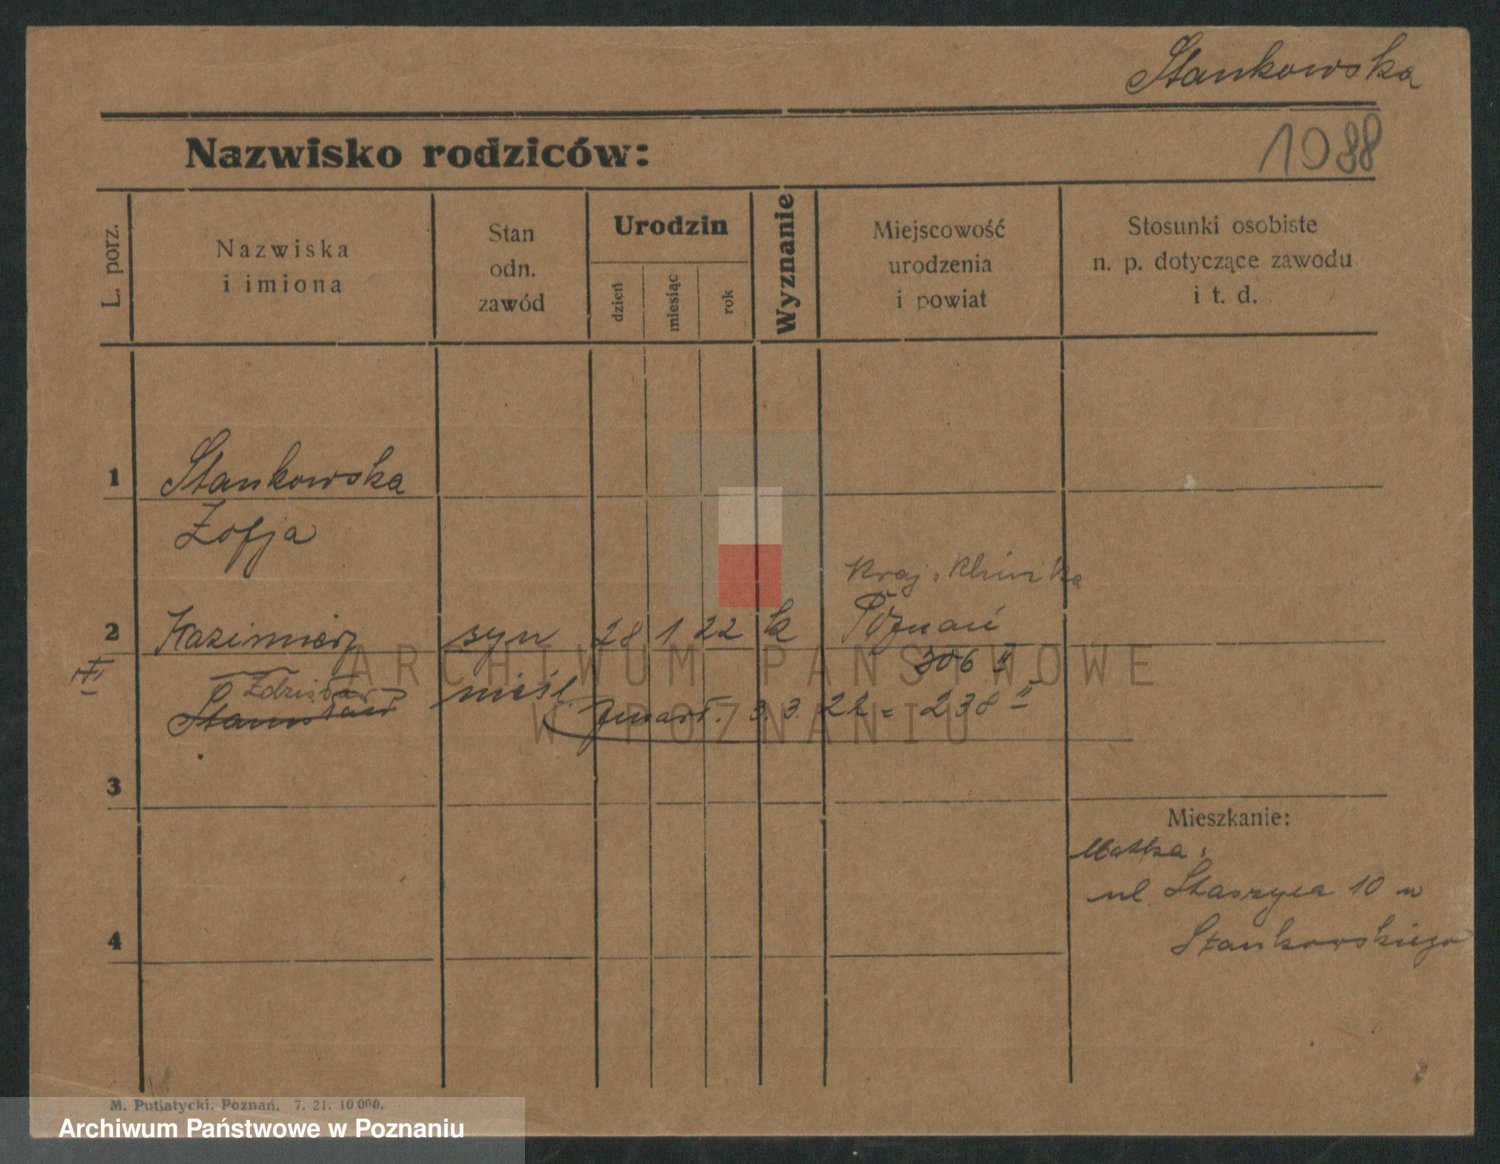 Stankowska
Nazwisko rodziców:
1088
L. porz.
Nazwiska
i imiona
Stan
odn.
zawód
Urodzin
dzień
miesiąc
rok
Wyznanie
Miejscowość
urodzenia
i powiat
Stosunki osobiste
n. p. dotyczące zawodu
i t. d.
1
Stankowska
Zofja
Kraj. Klinika
2
Kazimierz
syn
28
1
22
k
Poznań
306 II
Zdzisław
nieśl.
Stanisław
zmarł. 3. 3. 22 = 238 II
3
Mieszkanie:
Matka:
ul. Staszyca 10 u
4
Stankowskiego
M. Putiatycki, Poznań, 7. 21. 10000.
ARCHIWUM PAŃSTWOWE
W POZNANIU
Archiwum Państwowe w Poznaniu